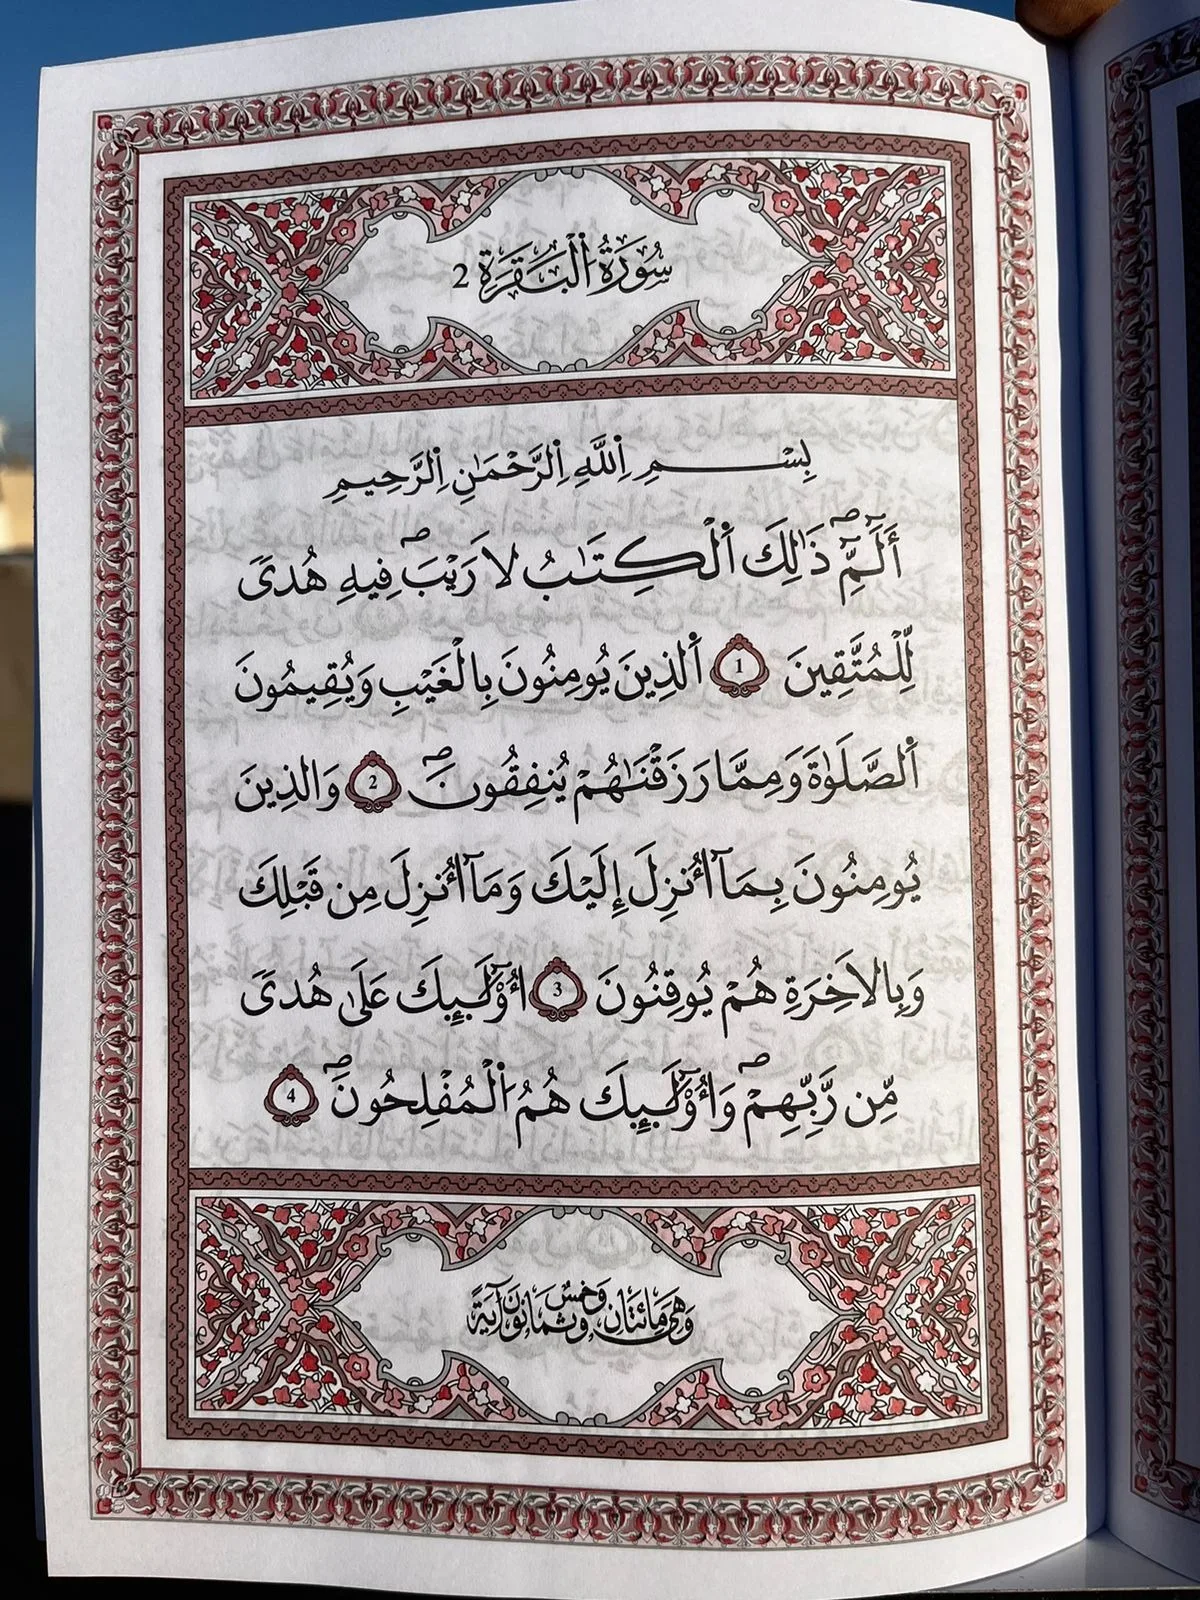 سُورَةُ اُلْبَقَرَةِ 2
بِسْمِ اِللَّهِ اِلرَّحْمَٰنِ اِلرَّحِيمِ
أَلَٓمِّٓۖ ذَٰلِكَ اَلْكِتَٰبُ لَا رَيْبَۖ فِيهِ هُدىً
لِّلْمُتَّقِينَ 1 اَلذِينَ يُومِنُونَ بِالْغَيْبِ وَيُقِيمُونَ
اَلصَّلَوٰةَ وَمِمَّا رَزَقْنَٰهُمْ يُنفِقُونَۖ 2 وَالذِينَ
يُومِنُونَ بِمَآ أُنزِلَ إِلَيْكَ وَمَآ أُنزِلَ مِن قَبْلِكَ
وَبِالَاخِرَةِ هُمْ يُوقِنُونَ 3 أُوْلَٰٓئِكَ عَلَىٰ هُدىً
مِّن رَّبِّهِمْۖ وَأُوْلَٰٓئِكَ هُمُ اُلْمُفْلِحُونَۖ 4
وَهِىَ مَائَتَانِ وَخَمْسٌ وَثَمَانُونَ آيَةً